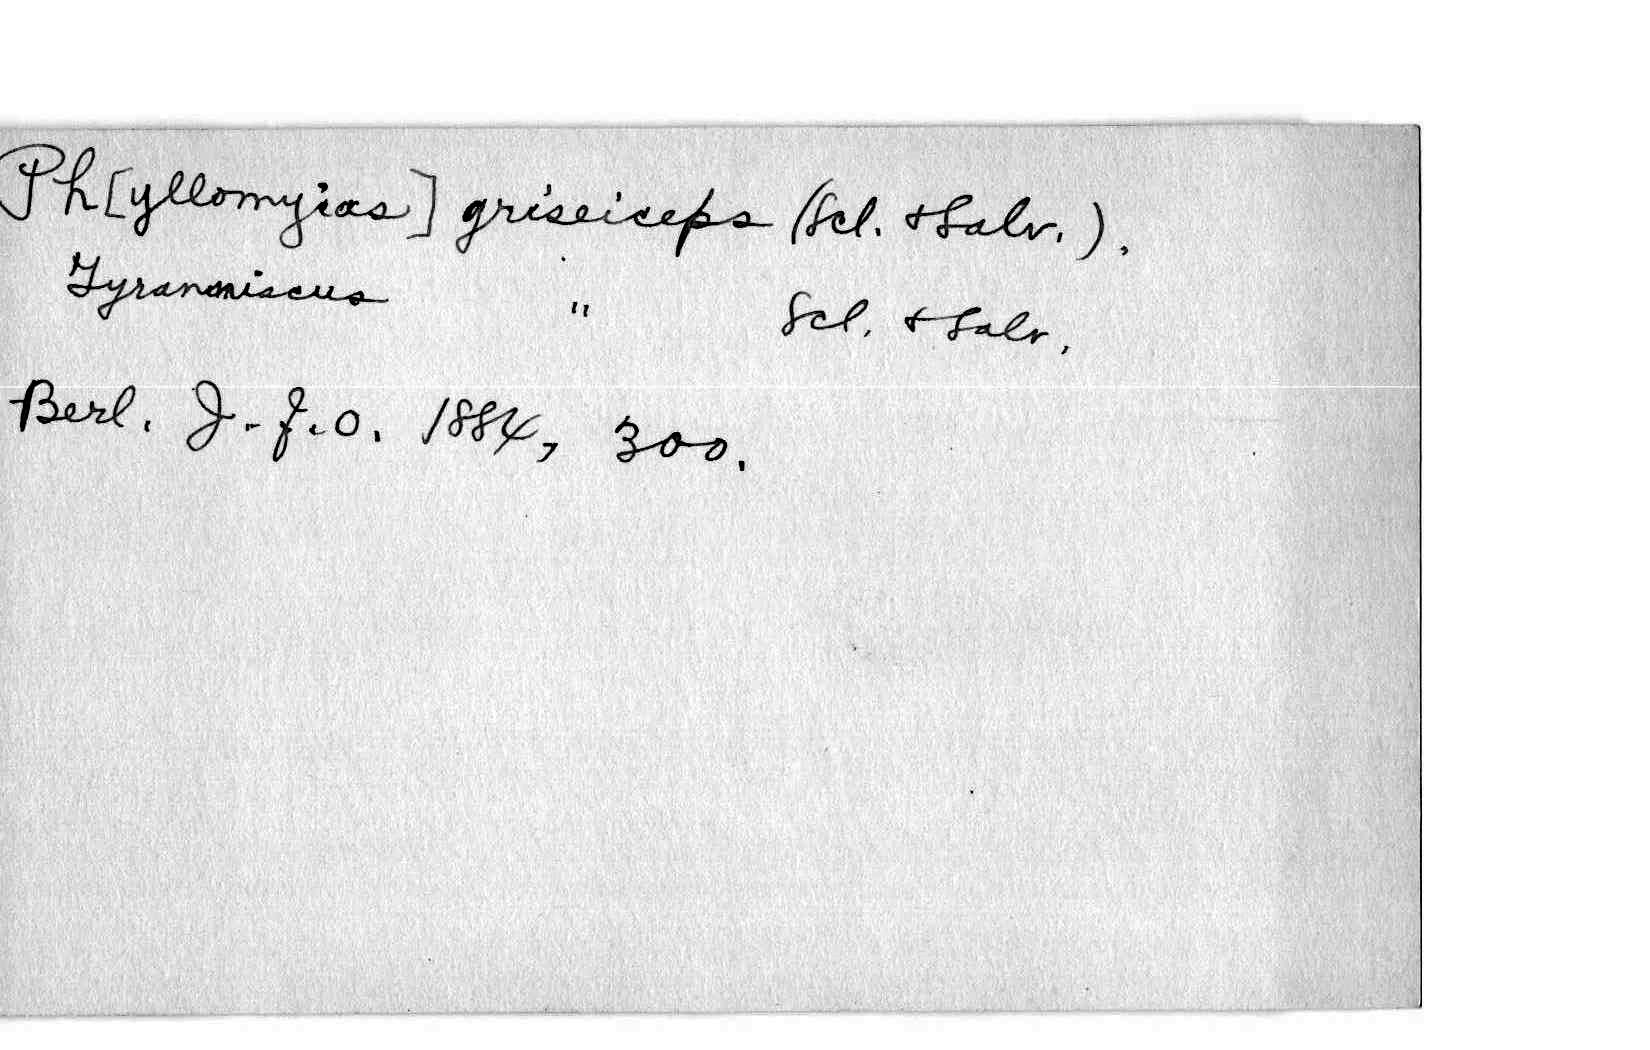 Ph[yllomyias] griseiceps (Scl. & Salv.).
Tyranniscus " Scl. & Salv.
Berl. J. f. O. 1884, 300.